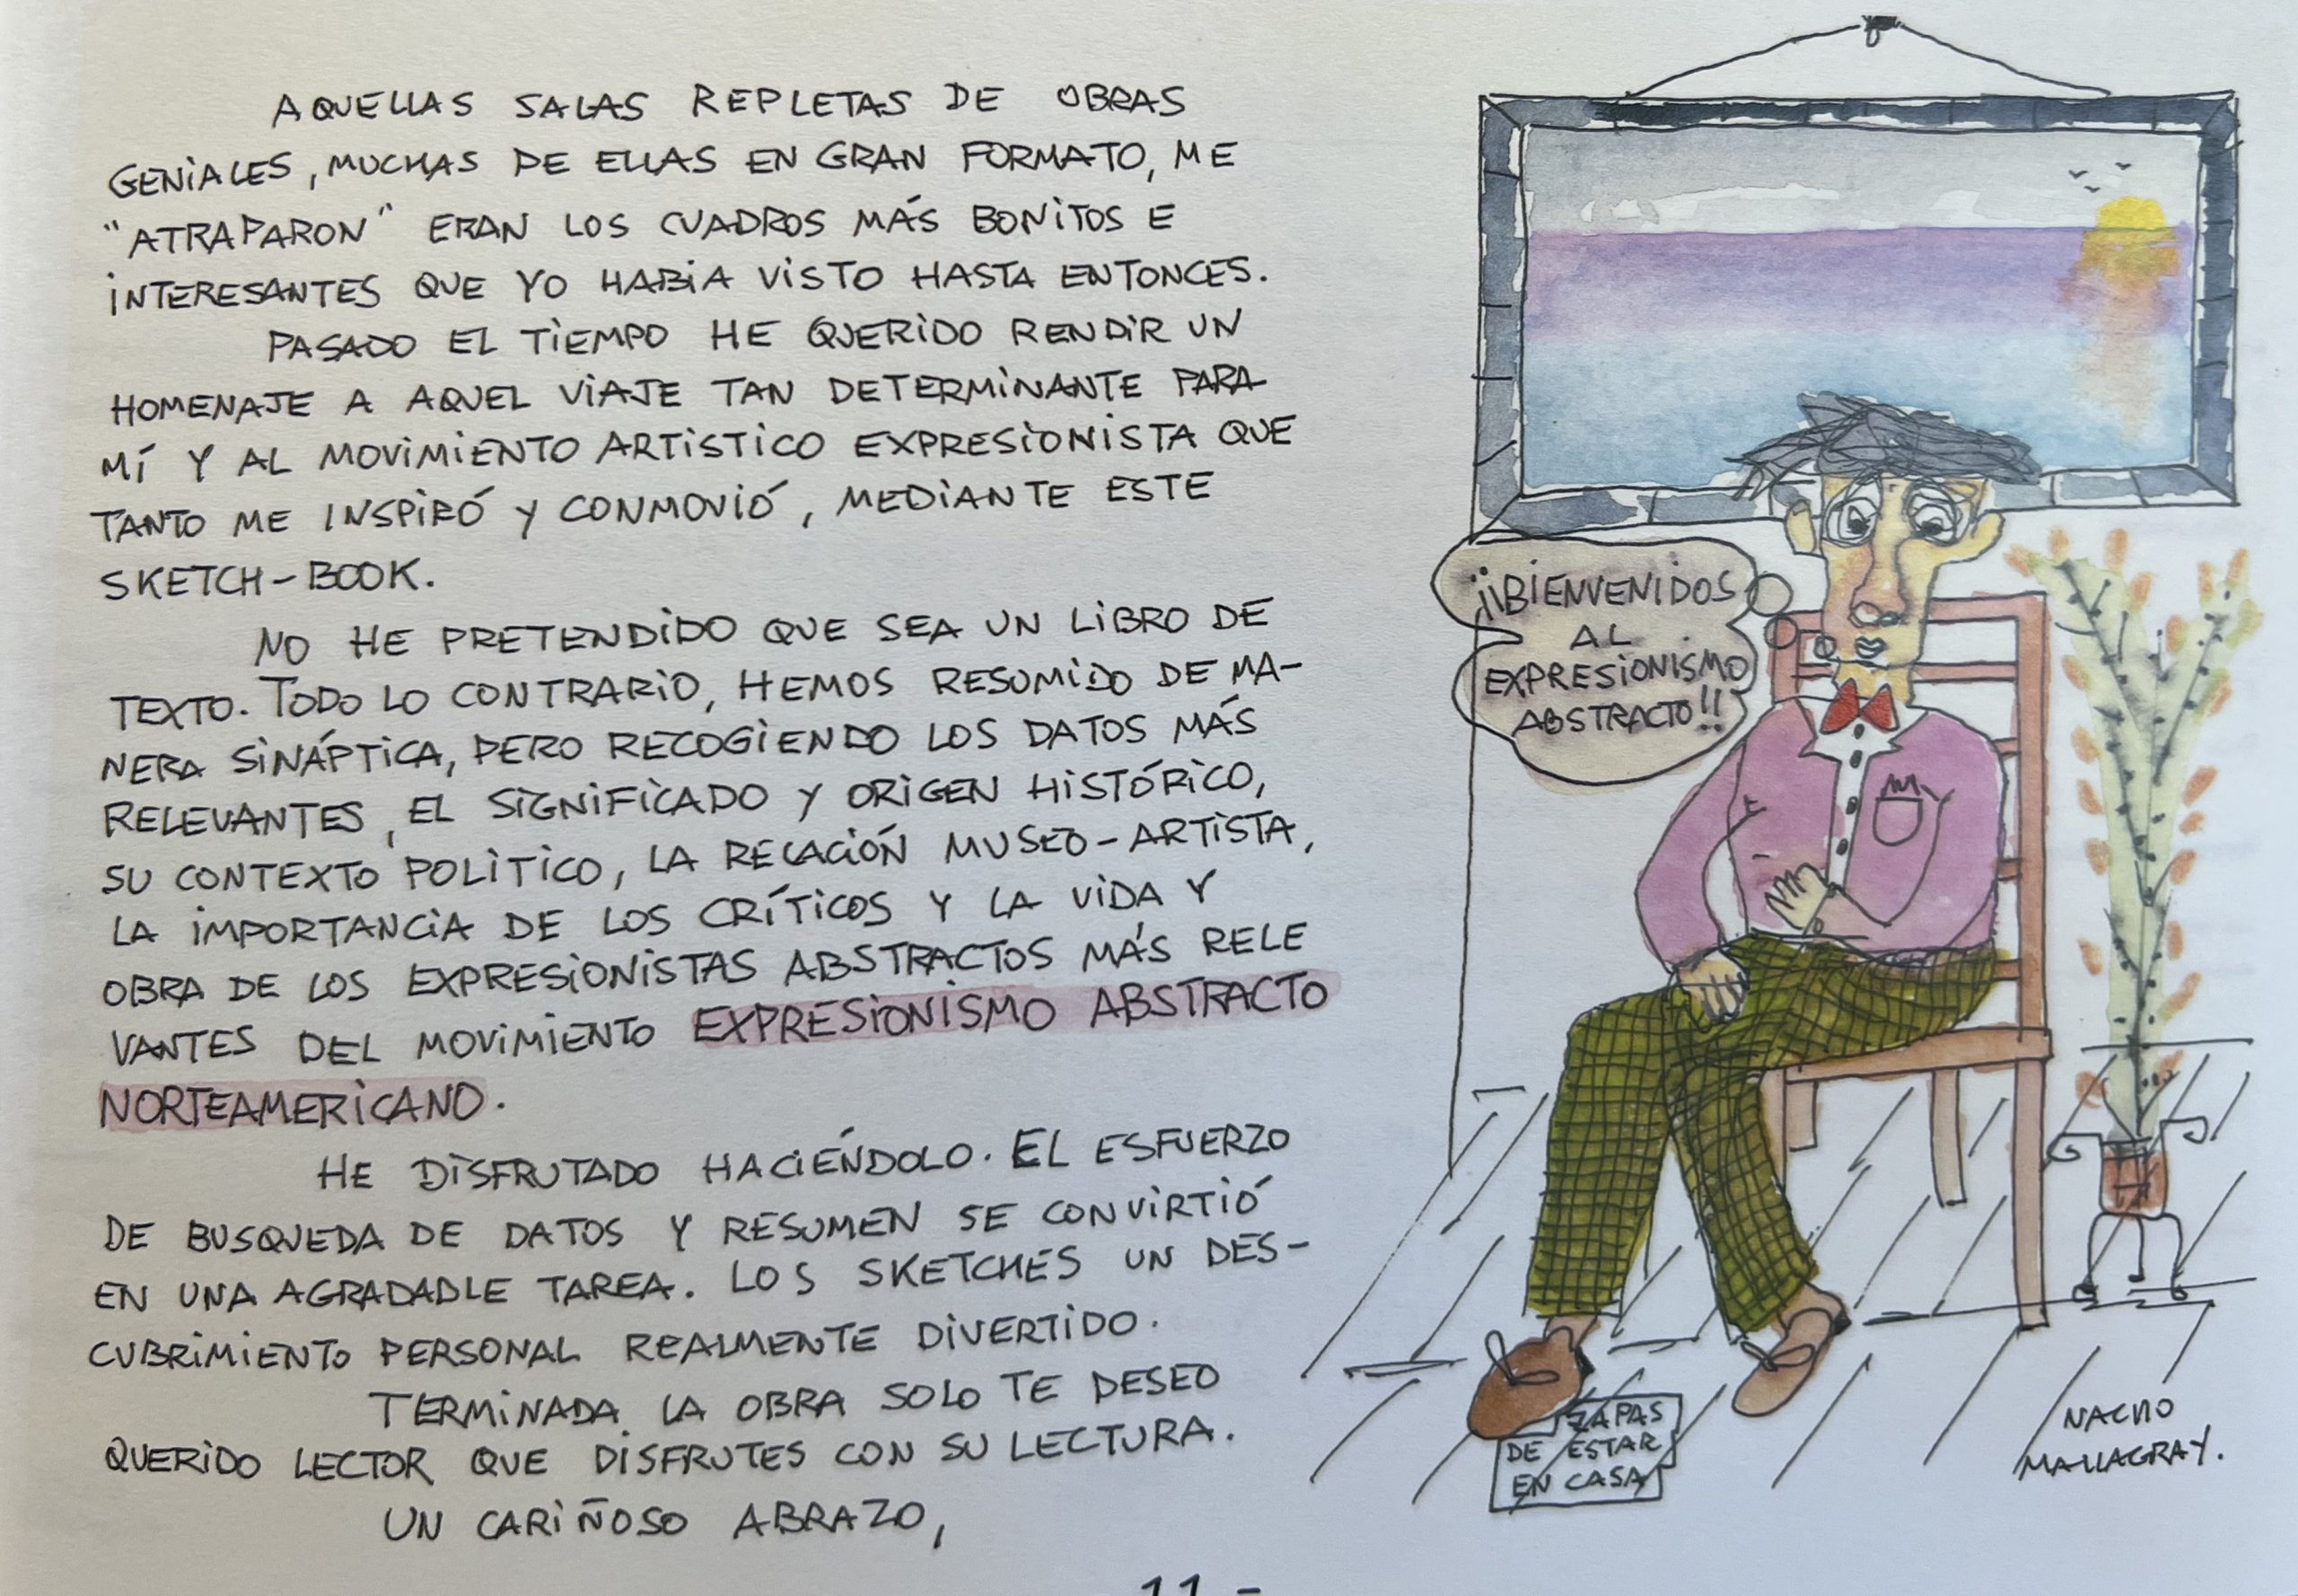 AQUELLAS SALAS REPLETAS DE OBRAS
GENIALES, MUCHAS DE ELLAS EN GRAN FORMATO, ME
"ATRAPARON" ERAN LOS CUADROS MÁS BONITOS E
INTERESANTES QUE YO HABIA VISTO HASTA ENTONCES.
PASADO EL TIEMPO HE QUERIDO RENDIR UN
HOMENAJE A AQUEL VIAJE TAN DETERMINANTE PARA
MÍ Y AL MOVIMIENTO ARTISTICO EXPRESIONISTA QUE
TANTO ME INSPIRÓ Y CONMOVIÓ, MEDIANTE ESTE
SKETCH-BOOK.
NO HE PRETENDIDO QUE SEA UN LIBRO DE
TEXTO. TODO LO CONTRARIO, HEMOS RESUMIDO DE MA-
NERA SINÁPTICA, PERO RECOGIENDO LOS DATOS MÁS
RELEVANTES, EL SIGNIFICADO Y ORIGEN HISTÓRICO,
SU CONTEXTO POLITICO, LA RELACIÓN MUSEO-ARTISTA,
LA IMPORTANCIA DE LOS CRÍTICOS Y LA VIDA Y
OBRA DE LOS EXPRESIONISTAS ABSTRACTOS MÁS RELE
VANTES DEL MOVIMIENTO EXPRESIONISMO ABSTRACTO
NORTEAMERICANO.
HE DISFRUTADO HACIÉNDOLO. EL ESFUERZO
DE BUSQUEDA DE DATOS Y RESUMEN SE CONVIRTIÓ
EN UNA AGRADADLE TAREA. LOS SKETCHES UN DES-
CUBRIMIENTO PERSONAL REALMENTE DIVERTIDO.
TERMINADA LA OBRA SOLO TE DESEO
QUERIDO LECTOR QUE DISFRUTES CON SU LECTURA.
UN CARIÑOSO ABRAZO,
11-
¡¡BIENVENIDOS
AL
EXPRESIONISMO
ABSTRACTO!!
ZAPAS
DE ESTAR
EN CASA
NACHO
MALLAGRAY.